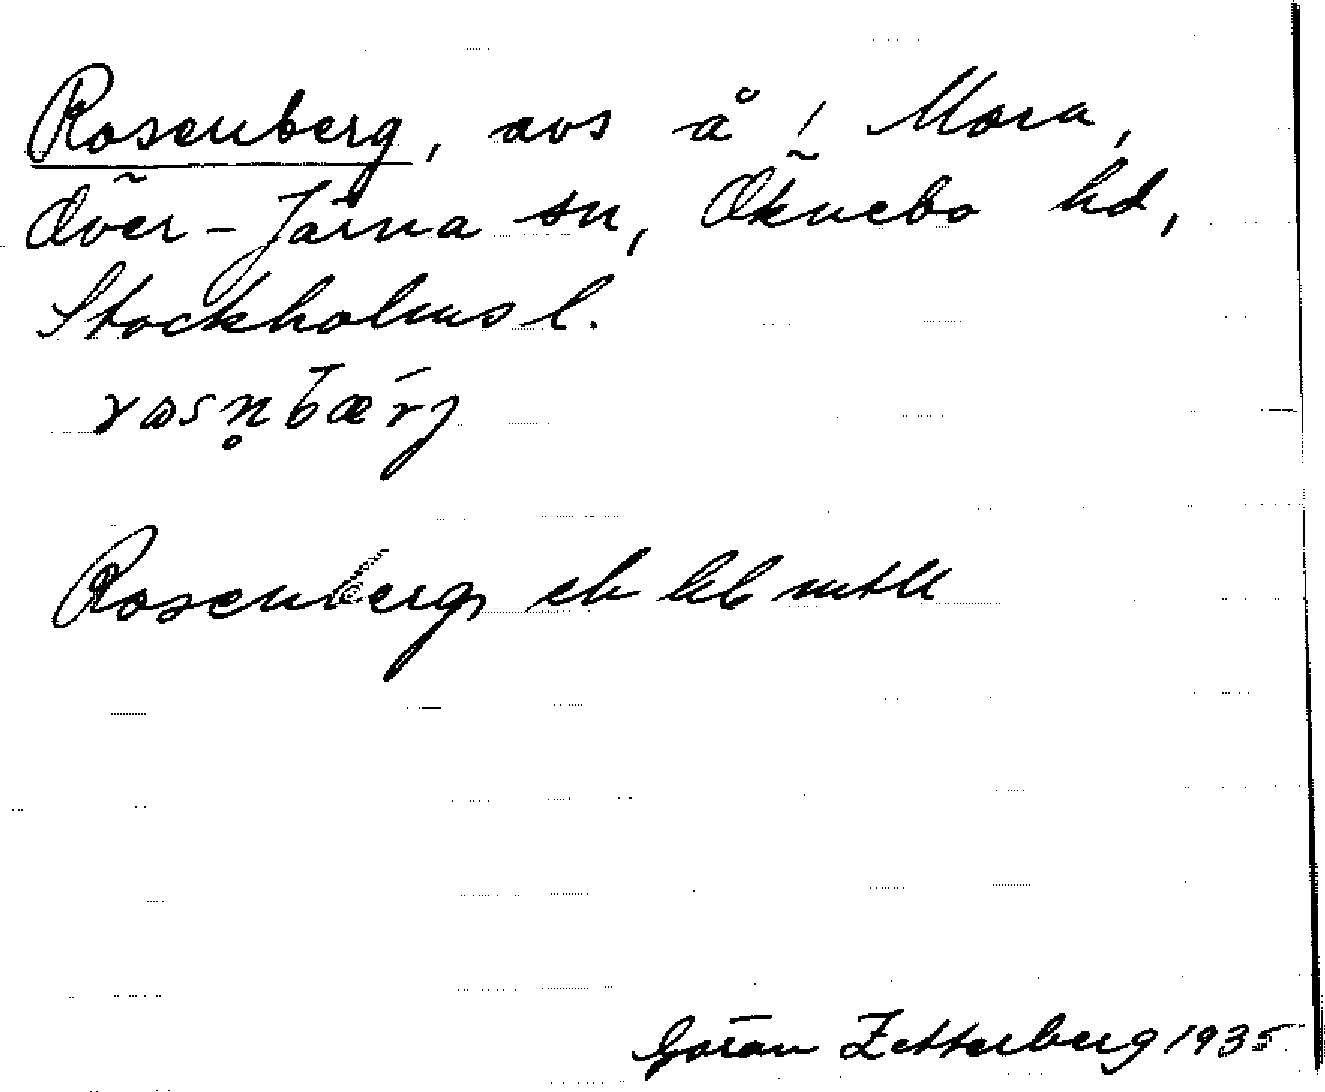 Rosenberg, avs å i Mora,
Över-Järna sn, Öknebo hd,
Stockholms l.
rosn̥bærj
Rosenberg, ek hb mtll
Göran Zetterberg 1935